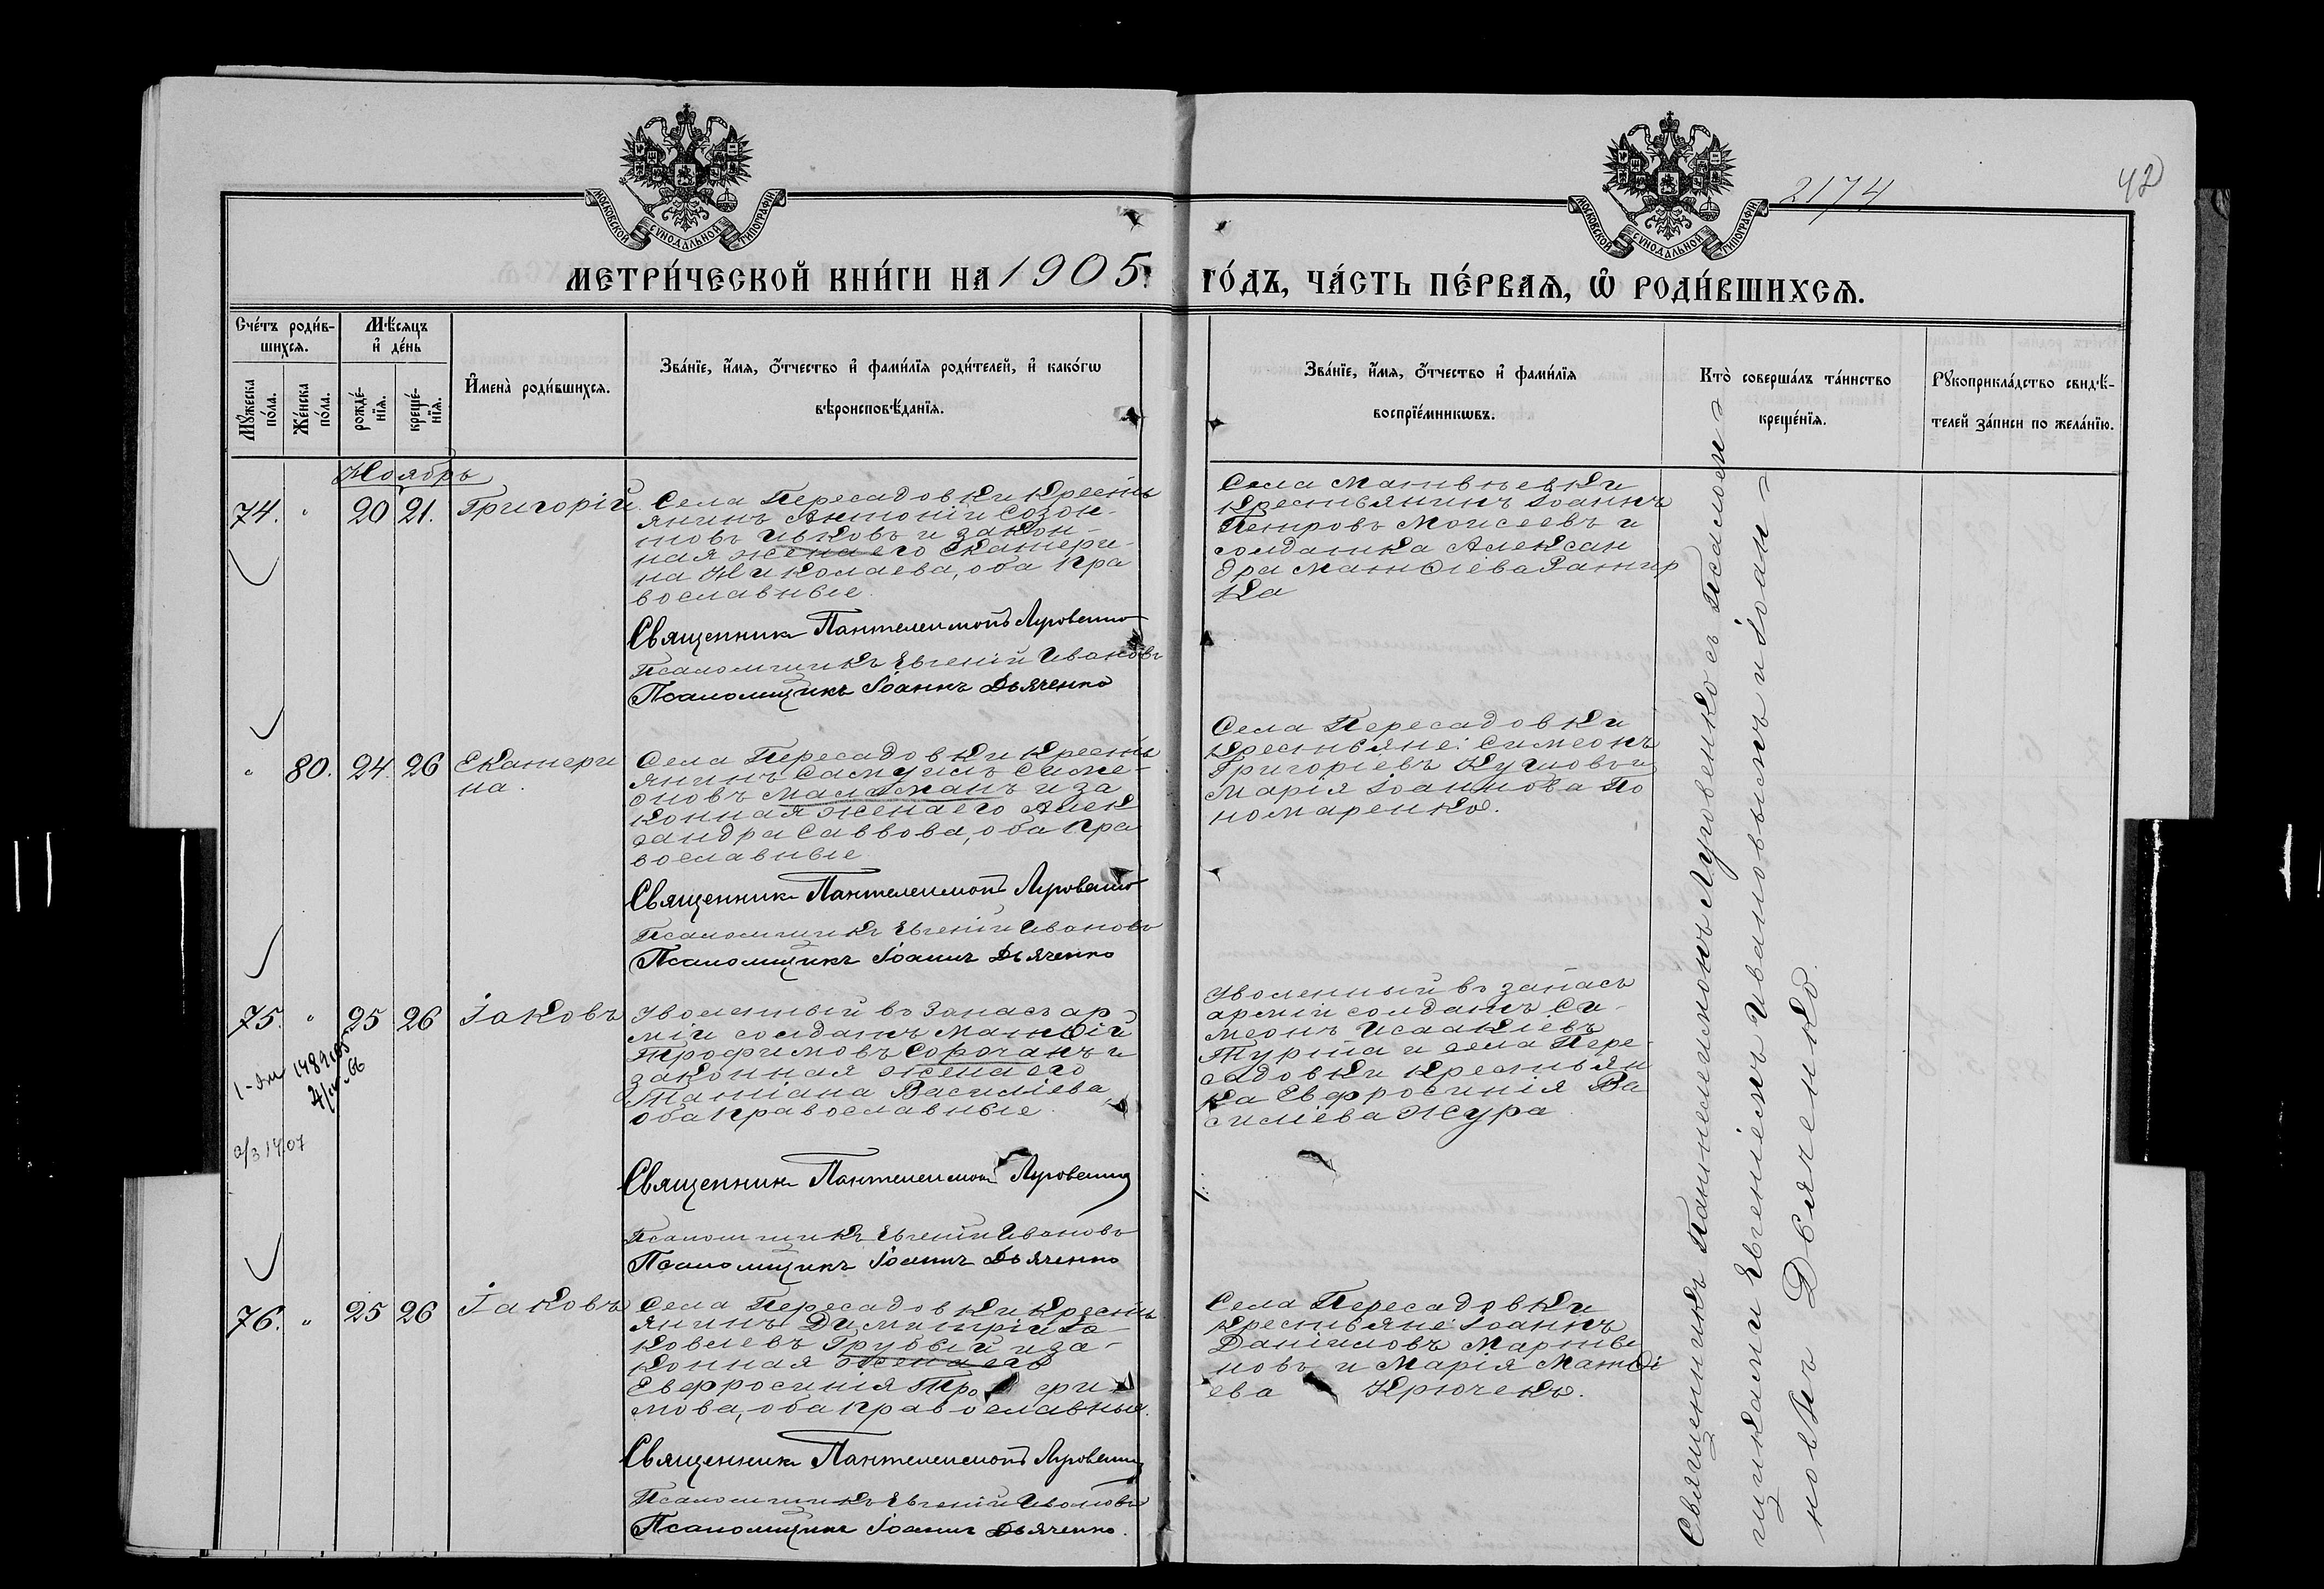 МОСКОВСКОЙ СѴНОДАЛЬНОЙ ТИПОГРАФІИ
МОСКОВСКОЙ СѴНОДАЛЬНОЙ ТИПОГРАФІИ
2174
42
МЕТРИ́ЧЕСКОЙ КНИ́ГИ НА 1905
ГО́ДЪ, ЧА́СТЬ ПЕ́РВАѦ, Ѽ РОДИ́ВШИХСѦ.
Сче́тъ роди́в-
шихсѧ.
Мꙋ́жеска по́ла.
Же́нска по́ла.
Мѣ́сѧцъ
и҆ де́нь
рожде́-
нїѧ.
креще́-
нїѧ.
И҆мена̀ роди́вшихсѧ.
Зва́нїе, и҆́мѧ, ѻ҆́тчество и҆ фами́лїѧ роди́телей, и҆ како́гѡ
вѣроисповѣ́данїѧ.
Зва́нїе, и҆́мѧ, ѻ҆́тчество и҆ фами́лїѧ
воспрїе́мникѡвъ.
Кто̀ соверша́лъ та́инство
креще́нїѧ.
Рꙋкоприкла́дство свидѣ́-
телей за́писи по жела́нїю.
Ноябрь
74. " 20 21. Григорій
Села Пересадовки кресть
янинъ Антоній Созон-
товъ Ивковъ и закон-
ная жена его Екатери-
на Николаева, оба пра
вославные.
Священник Пантелеимонъ Луговенко
Псаломщикъ Евгеній Ивановъ
Псаломщикъ Іоаннъ Дьяченко
Села Матвѣевки
крестьянинъ Іоаннъ
Петровъ Моисеевъ и
солдатка Алексан
дра Матѳіева
ка
" 80. 24. 26 Екатери
на.
Села Пересадовки кресть
янинъ Самуилъ Симе-
оновъ и за
конная жена его Алек
сандра Саввова, оба пра
вославные
Священник Пантелеимонъ Луговенко
Псаломщикъ Евгеній Ивановъ
Псаломщикъ Іоаннъ Дьяченко
Села Пересадовки
крестьяне: Симеонъ
Григоріевъ и
Марія Іоаннова По
номаренко.
75. " 25 26 Іаковъ
Уволенный въ запасъ ар-
міи солдатъ Матѳій
Трофимовъ Сорочанъ и
законная жена его
Татіана Василіева,
оба православные.
Священник Пантелеимонъ Луговенко
Псаломщикъ Евгеній Ивановъ
Псаломщикъ Іоаннъ Дьяченко
Уволенный въ запасъ
арміи солдатъ Си-
меонъ Исаакіевъ
и села Пере-
садовки крестьян
ка Евфросинія Ва
силіева Жура
76. " 25 26 Іаковъ
Села Пересадовки кресть
янинъ Димитрій Іа-
ковлевъ Грубый и за-
конная жена его
Евфросинія Тро фи
мова, оба православные.
Священник Пантелеимонъ Луговенко
Псаломщикъ Евгеній Ивановъ
Псаломщикъ Іоаннъ Дьяченко.
Села Пересадовки
крестьяне: Іоаннъ
Даніиловъ Марты
новъ и Марія Матѳі
ева Крючекъ.
Священникъ Пантелеимонъ Луговенко съ Псалом-
щиками Евгеніемъ Ивановымъ и Іоан-
номъ Дьяченко.